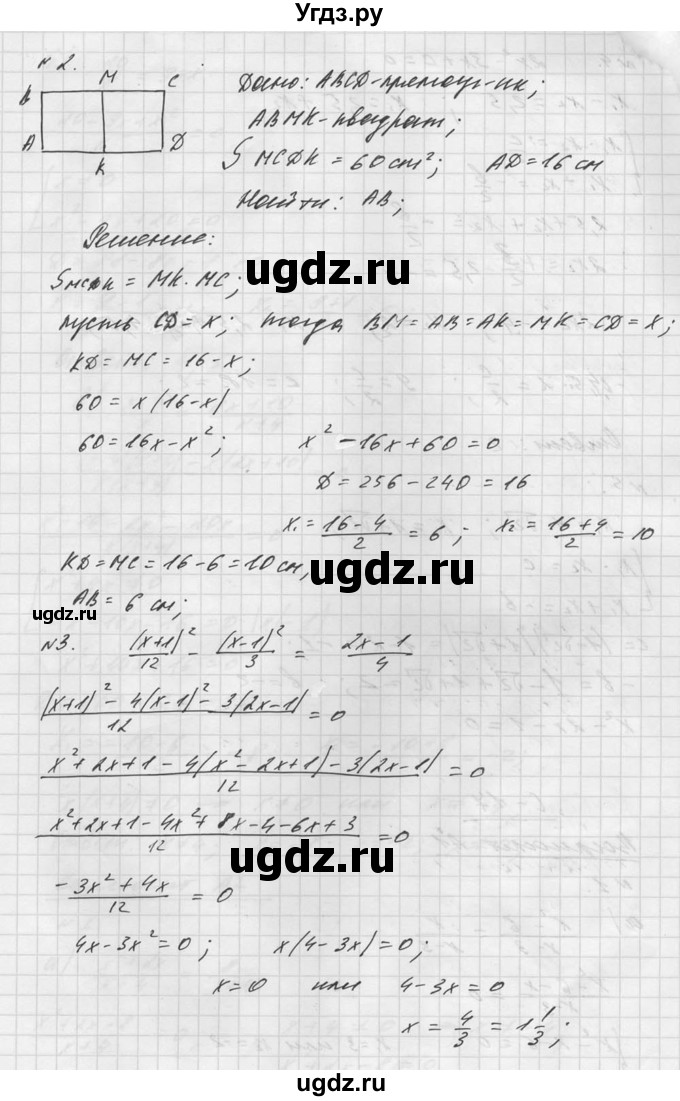 Угдз.ру
№ 2.
M C
B
A D
K
Дано: ABCD-прямоуг-ик;
ABMK-квадрат;
S MCDK = 60 cm²; AD = 16 см
Найти: AB;
Решение:
Sмсдк = MK · MC;
пусть CD = x; тогда BM = AB = AK = MK = CD = x;
KD = MC = 16 - x;
60 = x(16-x)
60 = 16x - x²; x² - 16x + 60 = 0
Д = 256 - 240 = 16
x₁ = (16 - 4)/2 = 6; x₂ = (16 + 4)/2 = 10
KD = MC = 16 - 6 = 10 см,
AB = 6 см;
№3. (x+1)²/12 - (x-1)²/3 = (2x - 1)/4
((x+1)² - 4(x-1)² - 3(2x-1))/12 = 0
(x² + 2x + 1 - 4(x² - 2x + 1) - 3(2x-1))/12 = 0
(x² + 2x + 1 - 4x² + 8x - 4 - 6x + 3)/12 = 0
(-3x² + 4x)/12 = 0
4x - 3x² = 0; x(4 - 3x) = 0;
x = 0 или 4 - 3x = 0
x = 4/3 = 1 1/3;
ugdz.ru
ugdz.ru
ugdz.ru
ugdz.ru
ugdz.ru
ugdz.ru
ugdz.ru